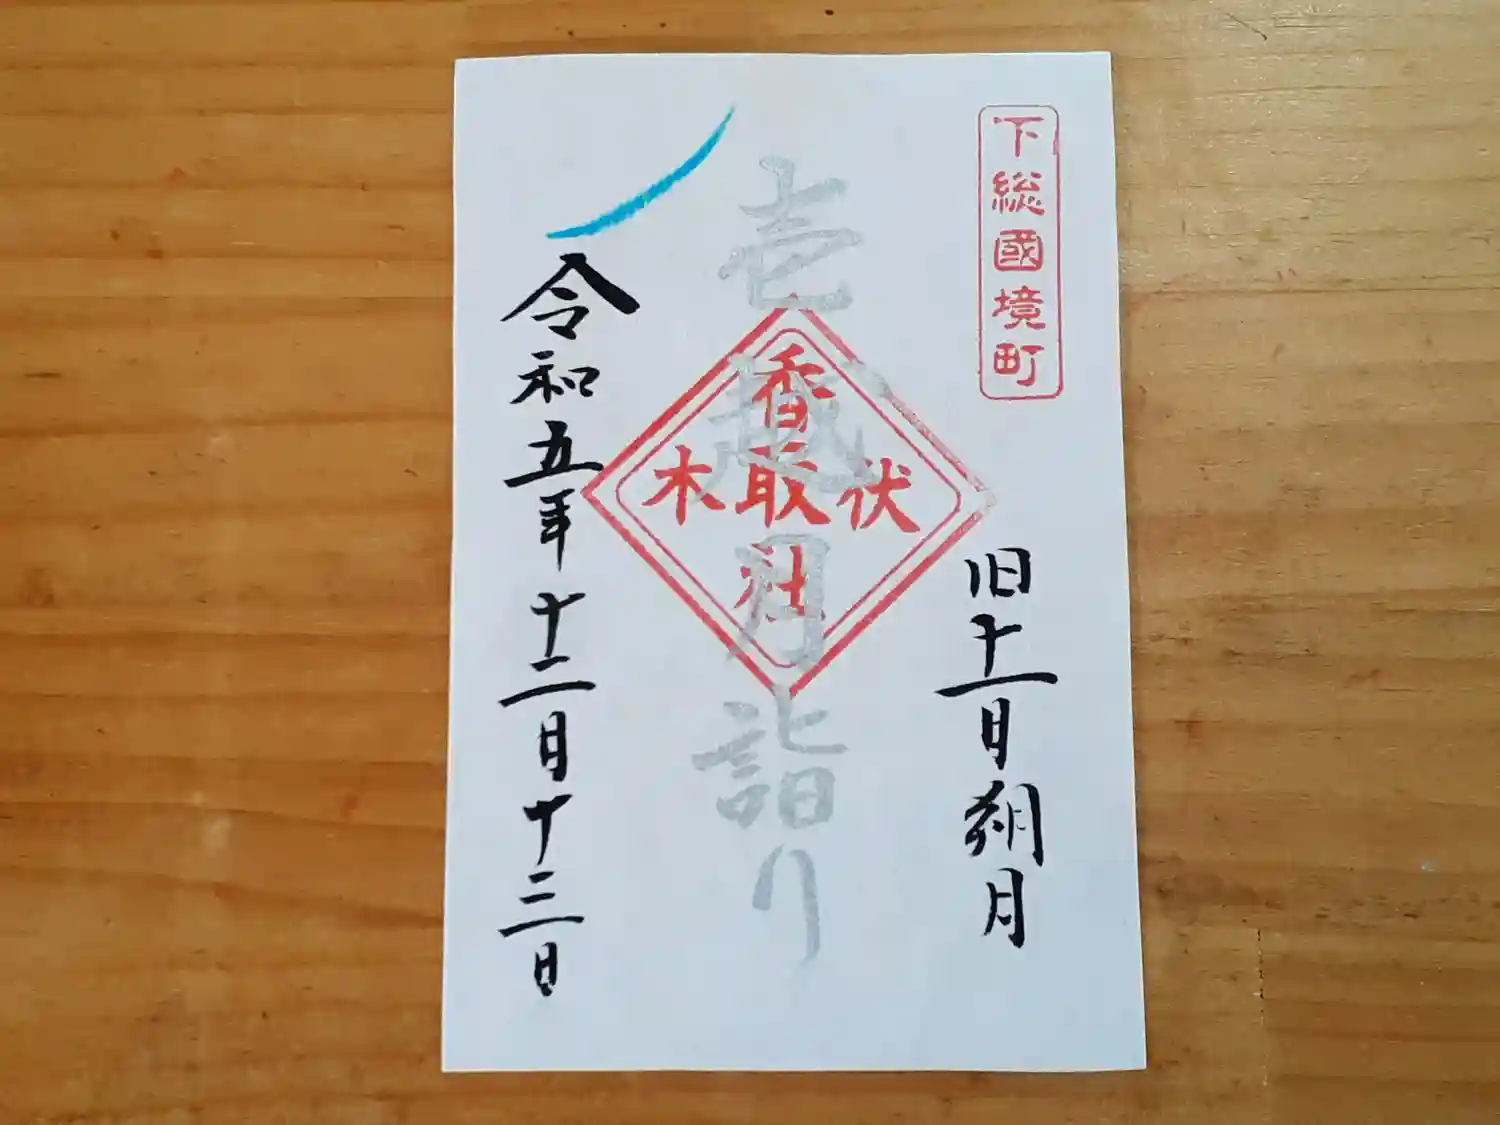 下総國境町
旧十一月朔月
壱越月詣り
伏木
香取社
令和五年十二月十三日